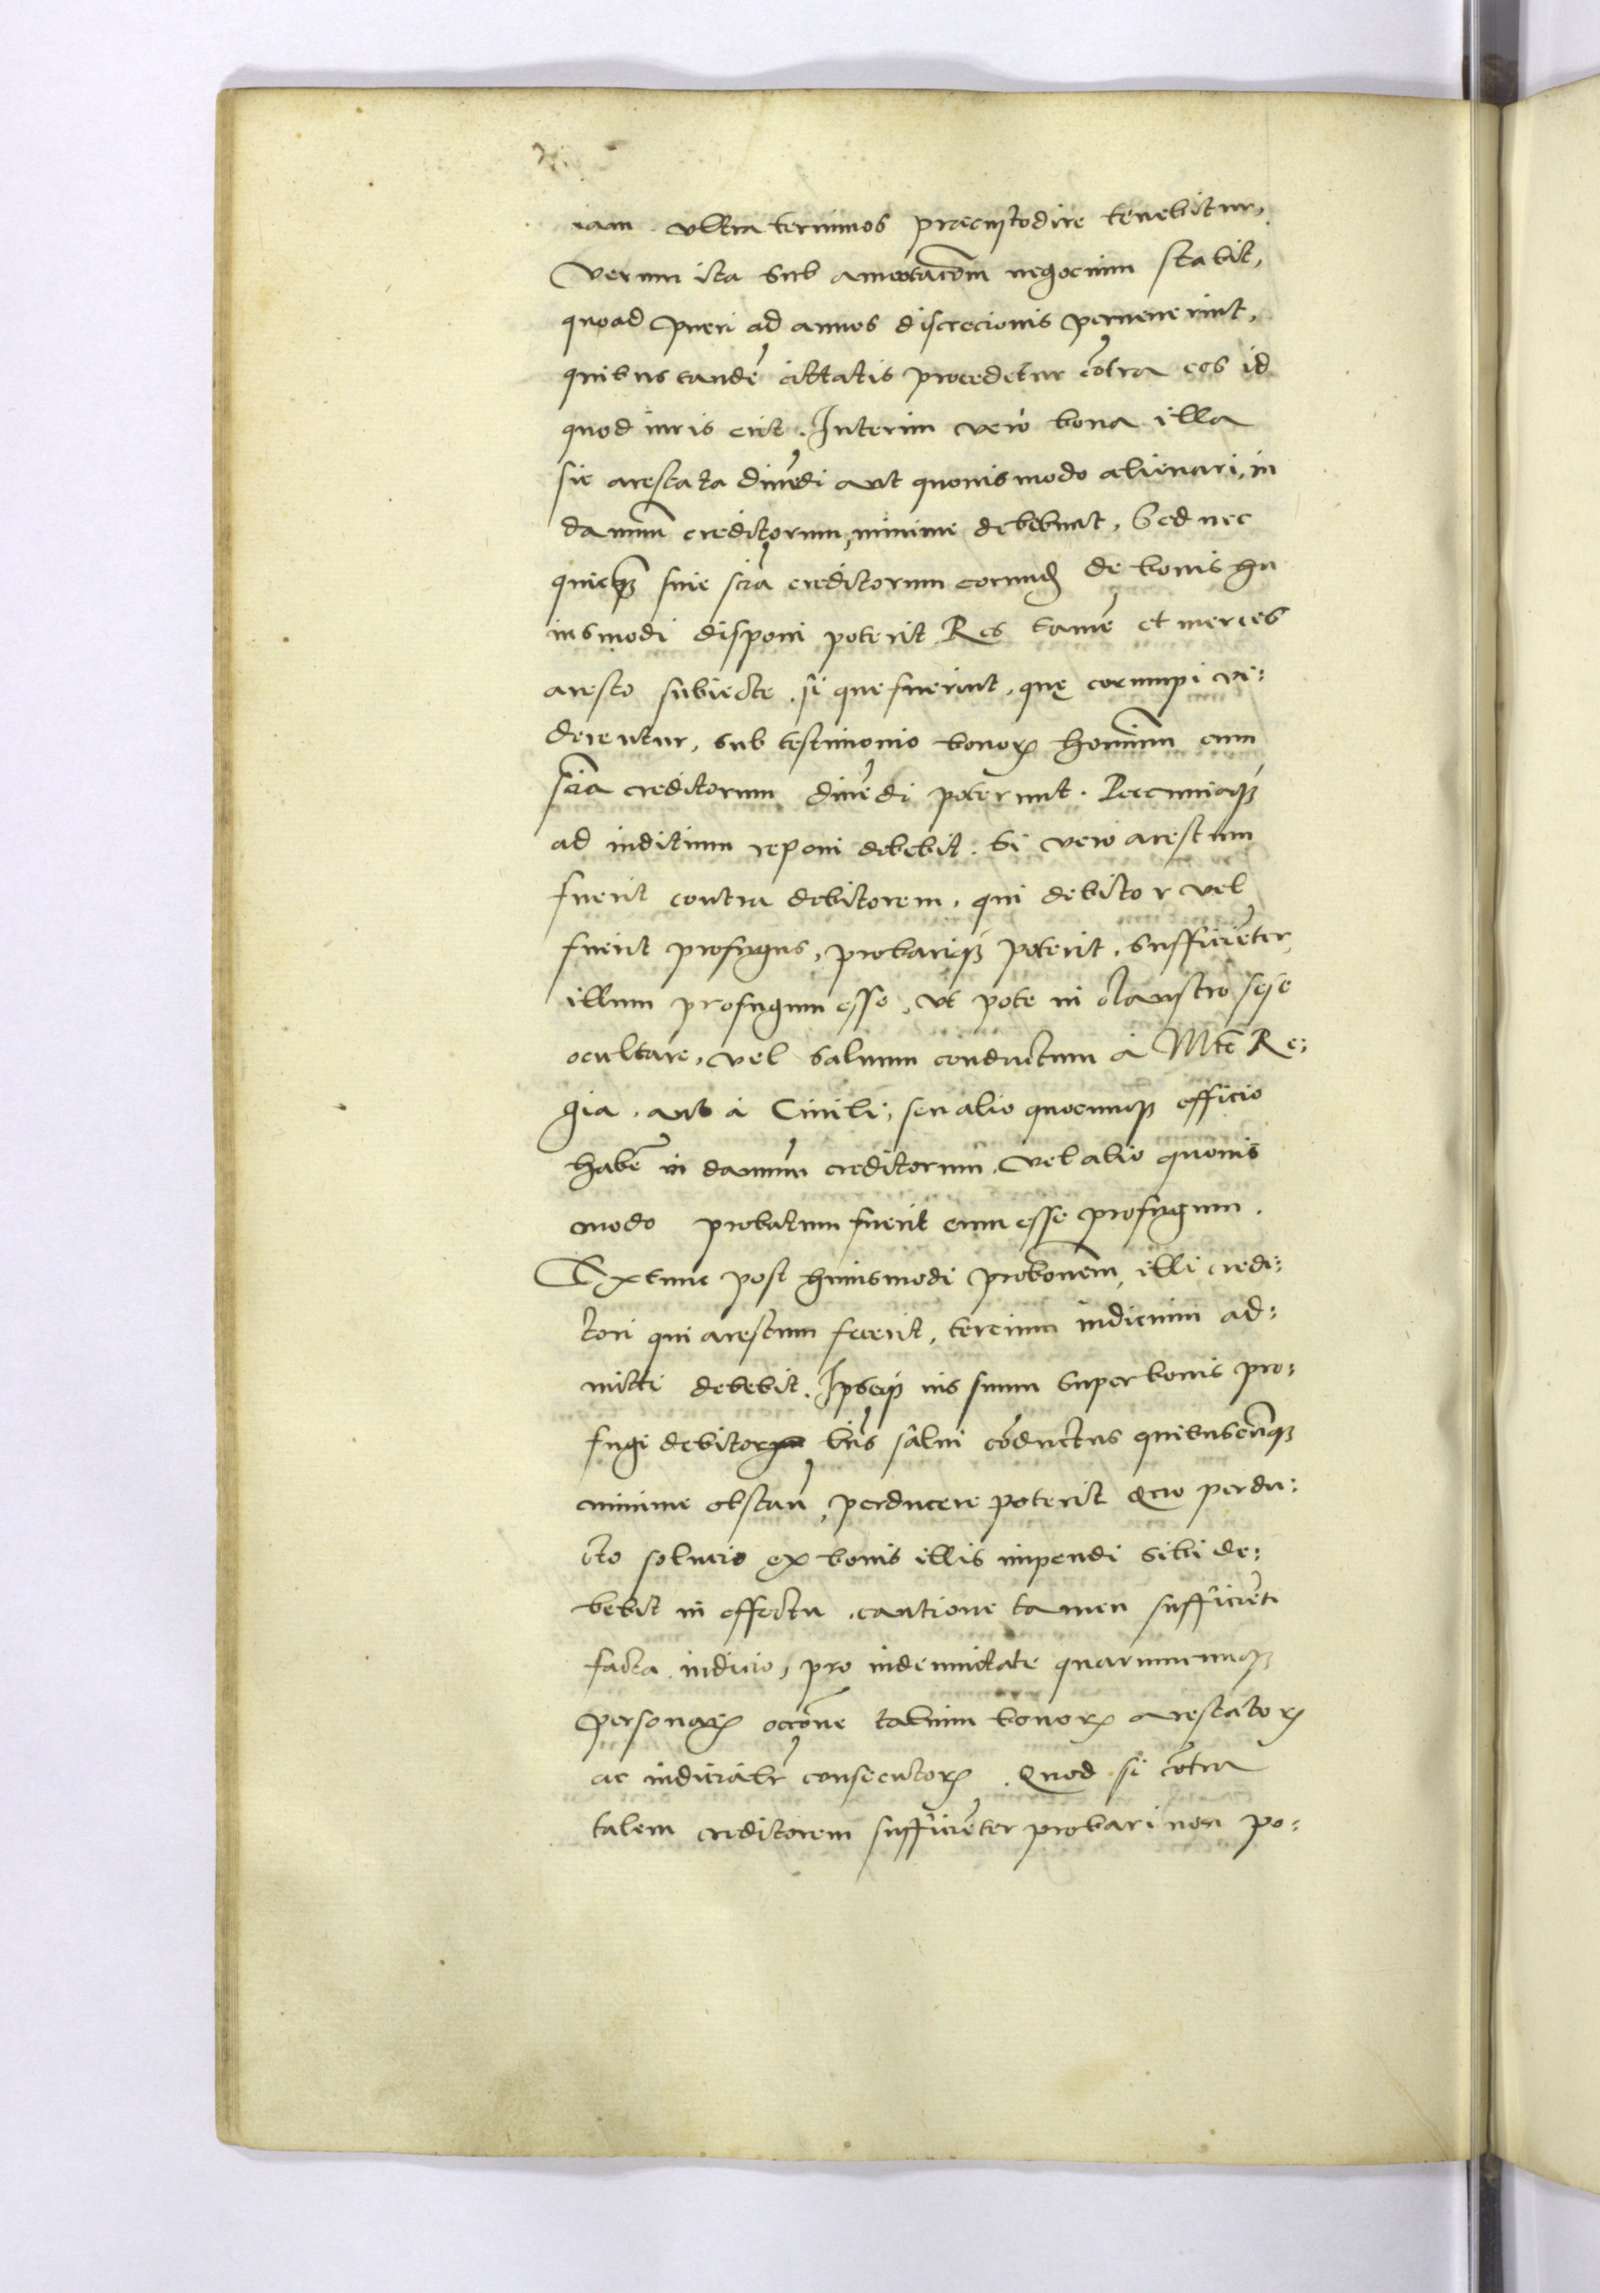 iam vltra terminos praecustodire tenebitur,
Verum ita sub annotacõem negocium stabit,
quoad pueri ad annos discrecionis peruenerint,
quibus tandẽ cittatis procedetur cõtra eos id
quod iuris erit. Interim vero bona illa
sic arestata diuẽdi aut quouismodo alienari, in
damnũ creditorum, minime debebunt, Sed nec
quicq̃ sine sciã creditorum eorund̃ de bonis hu
iusmodi disponi poterit Res tamẽ et merces
aresto subiecte, si que fuerint, quę corrumpi vi:
derentur, sub testimonio bonorꝝ hominũ cum
sciã creditorum diuẽdi poterunt. Pecuniaq;
ad iuditium reponi debebit. Si vero arestum
fuerit contra debitorem, qui debitor vel
fuerit profugus, probariq; poterit, sufficiẽter
illum profugum esse, vt pote in claustro sese
ocultare, vel saluum conductum à Mte Re:
gia, aut à Ciuili, seu alio quocunq; officio
habẽ in damnũ creditorum, vel alio quouis
modo probatum fuerit eum esse profugum.
Extunc post huiusmodi probõnem, illi credi:
tori qui arestum fecerit, tercium iudicium ad:
mitti debebit. Ipseq; ius suum super bonis pro:
fugi debitoris salui cõductus quibuscũq;
minime obstañ, perducere poterit Quo perdu:
cto solucio ex bonis illis impendi sibi de:
bebit in effectu, cautione tamen sufficiẽti
facta iudicio, pro indemnitate quarumcunq;
personarꝝ occõne talium bonorꝝ arestatorꝝ
ac iudicialr̃ consecutorꝝ. Quod si cõtra
talem creditorem sufficiẽter probari non po: